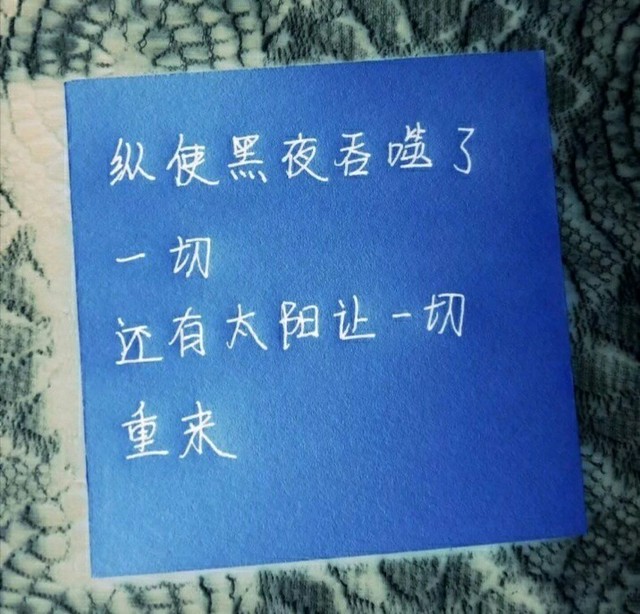 纵使黑夜吞噬了
一切
还有太阳让一切
重来